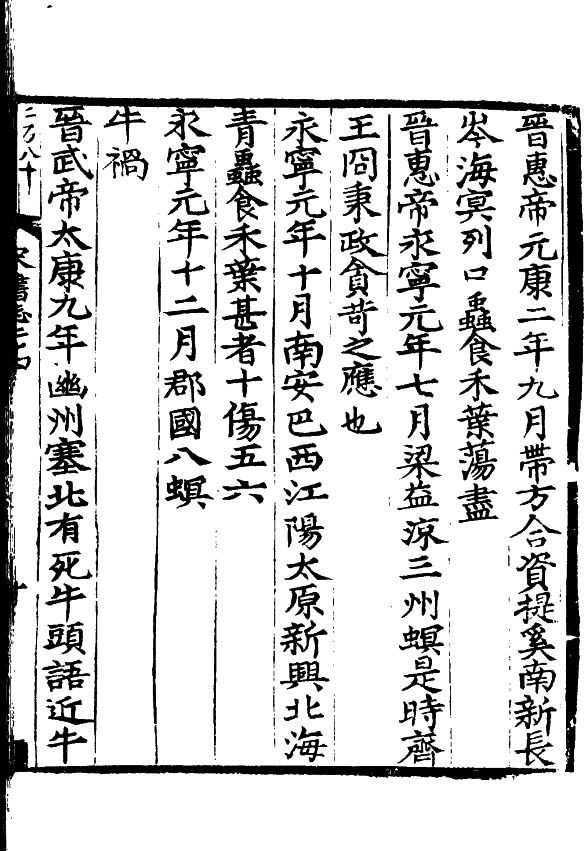 晉惠帝元康二年九月帶方含資提奚南新長
岑海冥列口蟲食禾葉蕩盡
晉惠帝永寧元年七月梁益涼三州螟是時齊
王冏秉政貪苛之應也
永寧元年十月南安巴西江陽太原新興北海
青蟲食禾葉甚者十傷五六
永寧元年十二月郡國八螟
牛禍
晉武帝太康九年幽州塞北有死牛頭語近牛
二百八十